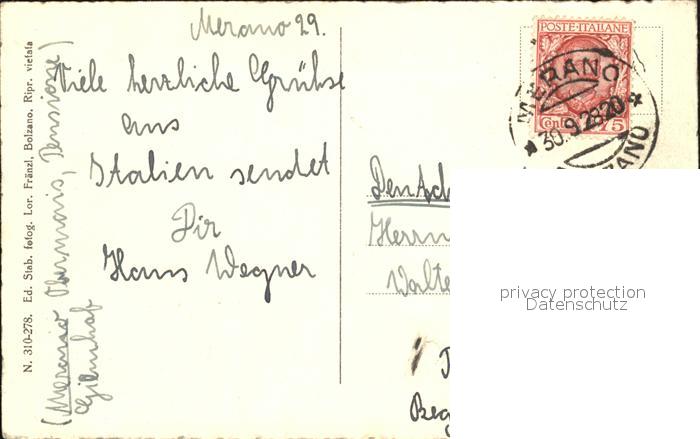 Merano 29.
Viele herzliche Grühse
aus
Italien sendet
Dir
Hans Wegner
(Merano Obermais, Pensione)
N. 310-278. Ed. Stab. fotog. Lor. Fränzl, Bolzano. Ripr. vietata
POSTE·ITALIANE
Cent 75
MERANO
* 30.9.28.20 *
BOLZANO
Herrn
privacy protection
Datenschutz